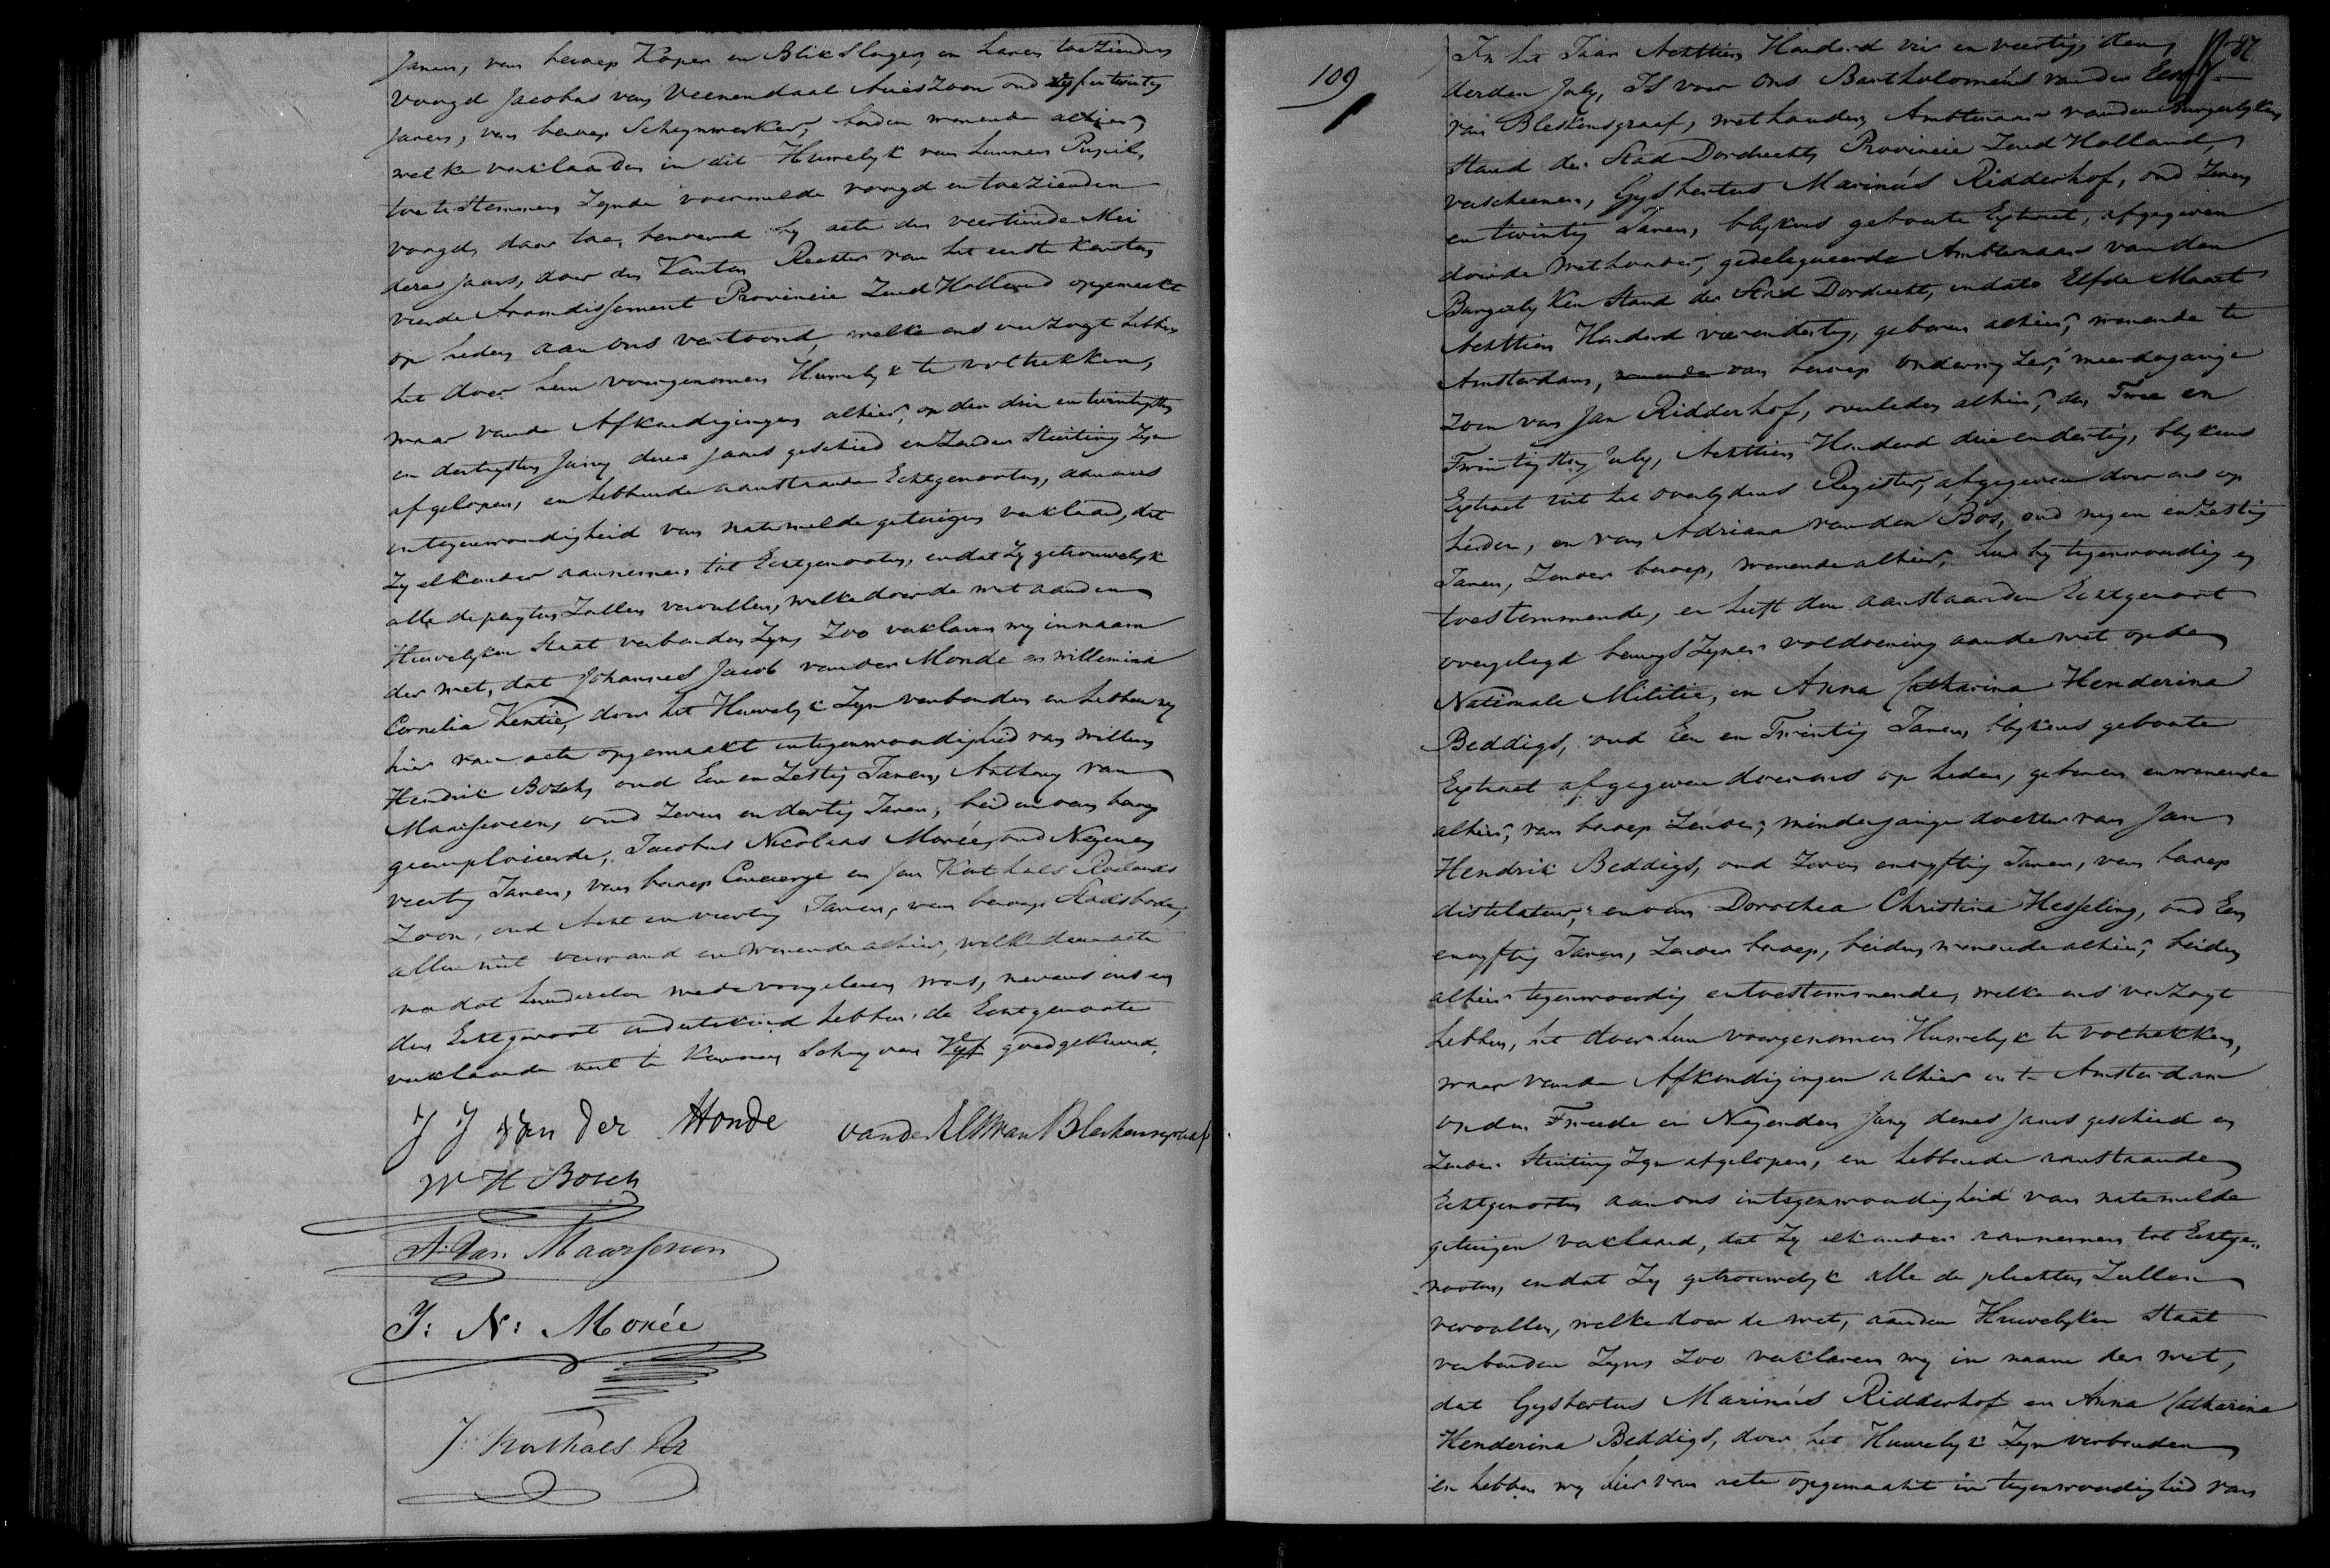 Jaren, van beroep Koper en Blikslager, en haren toezienden
voogd Jacobus van Veenendaal Arieszoon oud vyf en twintig
Jaren, van beroep Schrynwerker, beiden wonende alhier,
welke verklaarden in dit Huwelyk van hunnen Pupil,
toe te stemmen Zynde voormelde voogd en toezienden
voogd, daar toe benoemd by acte den veertiende Mei
dezes Jaars, door den Kanton Rechter van het eerste Kanton
vierde Arrondissement Provincie Zuid Holland opgemaakt
op heden aan ons vertoond, welke ons verzogt hebben
het door hun voorgenomen Huwelyk te voltrekken,
waar van de Afkondigingen alhier, op den drie en twintigsten
en dertigsten Juny dezes Jaars geschied en Zonder Stuiting Zyn
afgelopen, en hebbende aanstaande Echtgenooten, aan ons
in tegenwoordigheid van natemelde getuigen verklaard, dat
Zy elkander aannemen tot Echtgenooten, en dat Zy getrouwelyk
alle de pligten Zullen vervullen, welke door de wet aan den
Huwelyken Staat verbonden Zyn, Zoo verklaren wy in naam
der wet, dat Johannes Jacob van der Monde en Willemina
Cornelia Kentie, door het Huwelyk Zyn verbonden en hebben wy
hier van acte opgemaakt in tegenwoordigheid van Willem
Hendrik Bosch, oud Een en Zestig Jaren, Anthony van
Maarseveen, oud Zeven en dertig Jaren, beiden van beroep
geemploieerde, Jacobus Nicolaas Morée, oud Negen en
veertig Jaren, van beroep Concierge en Jan Korthals Roelands
Zoon, oud Acht en veertig Jaren, van beroep Stadsbode,
allen niet verwand en wonende alhier, welke deze acte
na dat hun dezelve mede voorgelezen was, nevens ons en
den Echtgenoot onderteekend hebben. de Echtgenoote
verklaarde niet te Kunnen Schryven Vyf goedgekeurd.
J J van der Monde van der Elst van Bleskensgraaf
W H Bosch
A: van Maarseveen
J: N: Morée
J: Korthals Rz
109
No 87
In het Jaar Achttien Honderd vier en veertig, den
derden July, Is voor Ons Bartholomeús van der Elst
van Bleskensgraaf, wethouder, Ambtenaar van den Burgerlyken
Stand der Stad Dordrecht, Provincie Zuid Holland,
verscheenen, Gysbertus Marinús Ridderhof, oud Zeven
en twintig Jaren, blykens geboorte Extract, afgegeven
door de Wethouder, gedelegueerde Ambtenaar van den
Burgerlyken Stand der Stad Dordrecht, in dato Elfde Maart
Achttien Honderd vier en dertig, geboren alhier, wonende te
Amsterdam, wonende van beroep onderwyzer, meerderjarige
Zoon van Jan Ridderhof, overleden alhier, den Twee en
Twintigsten July, Achttien Honderd drie en dertig, blykens
Extract uit het overlydens Register, afgegeven door ons op
heden, en van Adriana van den Bos, oud negen en Zestig
Jaren, Zonder beroep, wonende alhier, hier by tegenwoordig en
toestemmende, en heeft den aanstaanden Echtgenoot
overgelegd bewys Zyner voldoening aan de wet op de
Nationale Militie, en Anna Catharina Henderina
Beddigs, oud Een en Twintig Jaren, blykens geboorte
Extract afgegeven door ons op heden, geboren en wonende
alhier, van beroep Zonder, minderjarige dochter van Jan
Hendrik Beddigs, oud Zeven en vyftig Jaren, van beroep
distelateur, en van Dorothea Christina Hesseling, oud Een
en vyftig Jaren, Zonder beroep, beiden wonende alhier, beiden
alhier tegenwoordig en toestemmende, welke ons verzogt
hebben, het door hun voorgenomen Huwelyk te voltrekken,
waar van de Afkondigingen alhier en te Amsterdam
op den Tweede en Negenden Juny dezes Jaars geschied en
Zonder Stuiting Zyn afgelopen, en hebbende aanstaande
Echtgenooten aan ons in tegenwoordigheid van natemelde
getuigen verklaard, dat Zy elkander aannemen tot Echtge„
nooten, en dat Zy getrouwelyk alle de plichten Zullen
vervullen, welke door de wet, aan den Huwelyken Staat
verbonden Zyn, Zoo verklaren wy in naam der wet,
dat Gysbertus Marinús Ridderhof en Anna Catharina
Henderina Beddigs, door het Huwelyk Zyn verbonden
en hebben wy hier van acte opgemaakt in tegenwoordigheid van